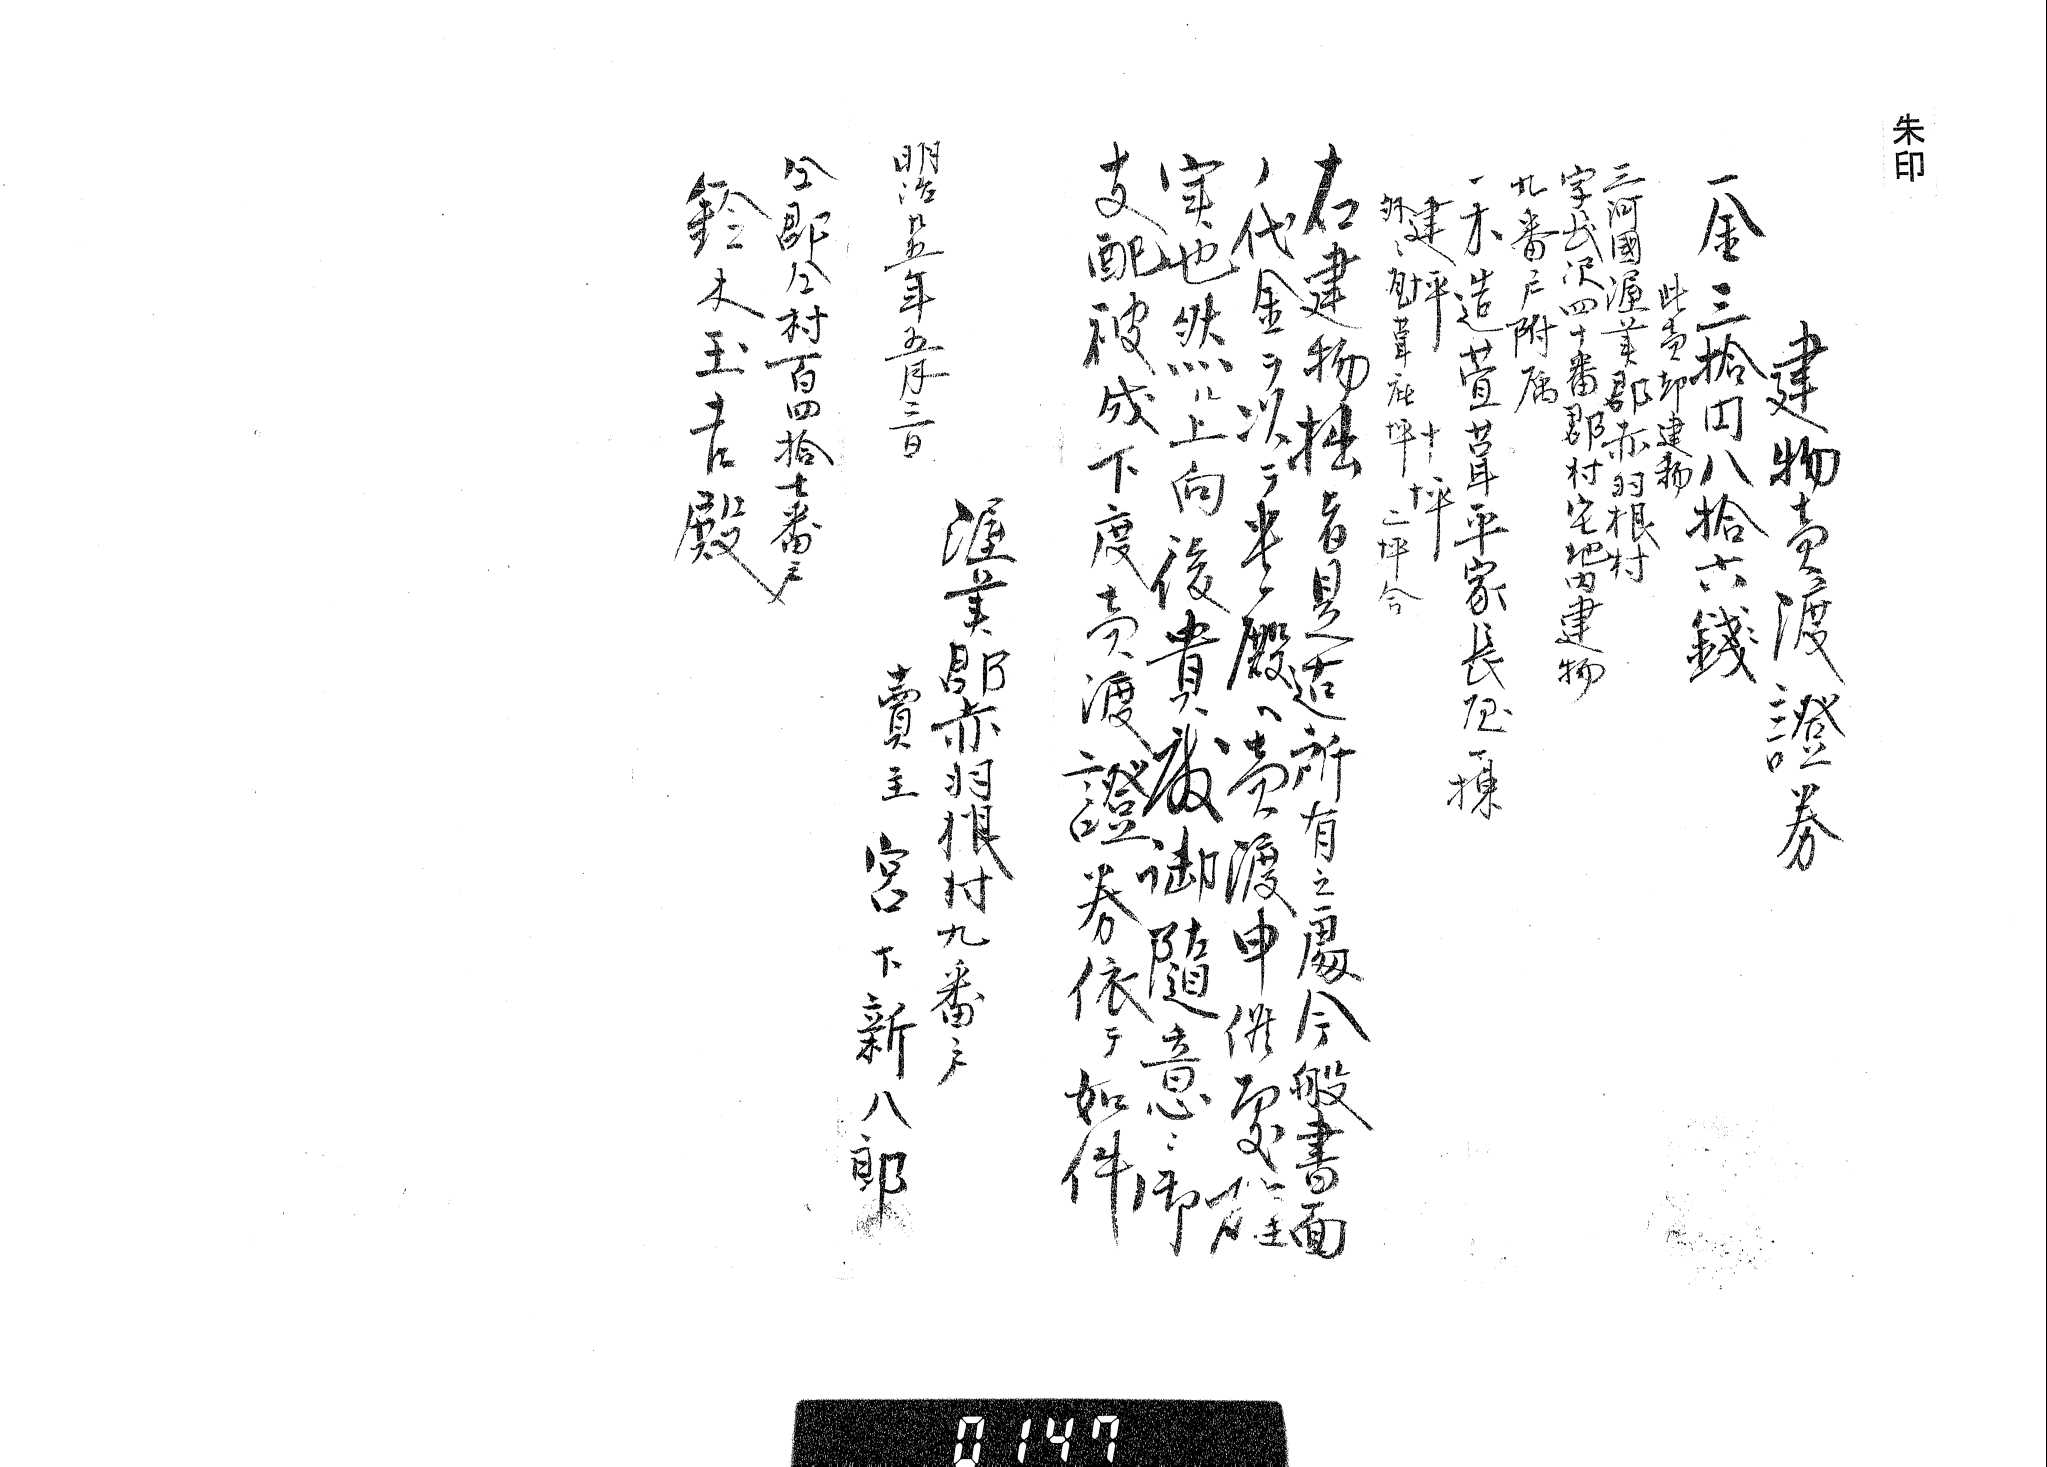 朱印
建物売渡證券
一金三拾円八拾六銭
此売却建物
三河國渥美郡赤羽根村
字 沢四十番郡村宅地内建物
九番戸附属
一木造萱葺平家長屋一棟
建坪 十坪
外ニ瓦葺庇坪二坪合
右建物拙者是迠所有之處今般書面
ノ代金ヲ以テ貴殿ヘ売渡申候處確
実也然ル上向後貴殿御随意ニ御
支配被成下度売渡證券依テ如件
渥美郡赤羽根村九番戸
賣主 宮下新八郎
明治廿五年五月三日
仝郡仝村百四拾七番戸
鈴木玉吉殿
0147